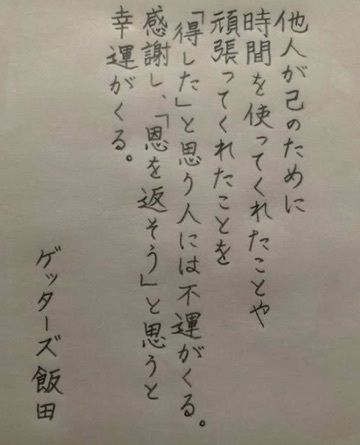 他人が己のために
時間を使ってくれたことや
頑張ってくれたことを
「得した」と思う人には不運がくる。
感謝し、「恩を返そう」と思うと
幸運がくる。
ゲッターズ飯田